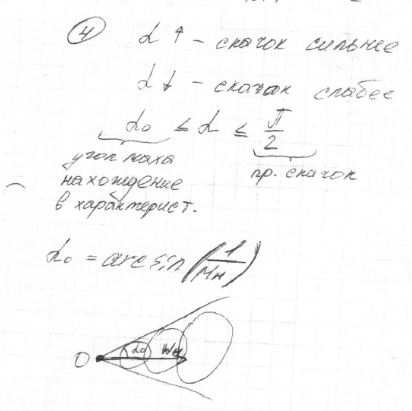 4
α ↑ - скачок сильнее
α ↓ - скачок слабее
α₀ ≤ α ≤ π/2
угол маха
нахождение
в характерист.
пр. скачок
α₀ = arcsin(1/Mн)
O α₀ Wн